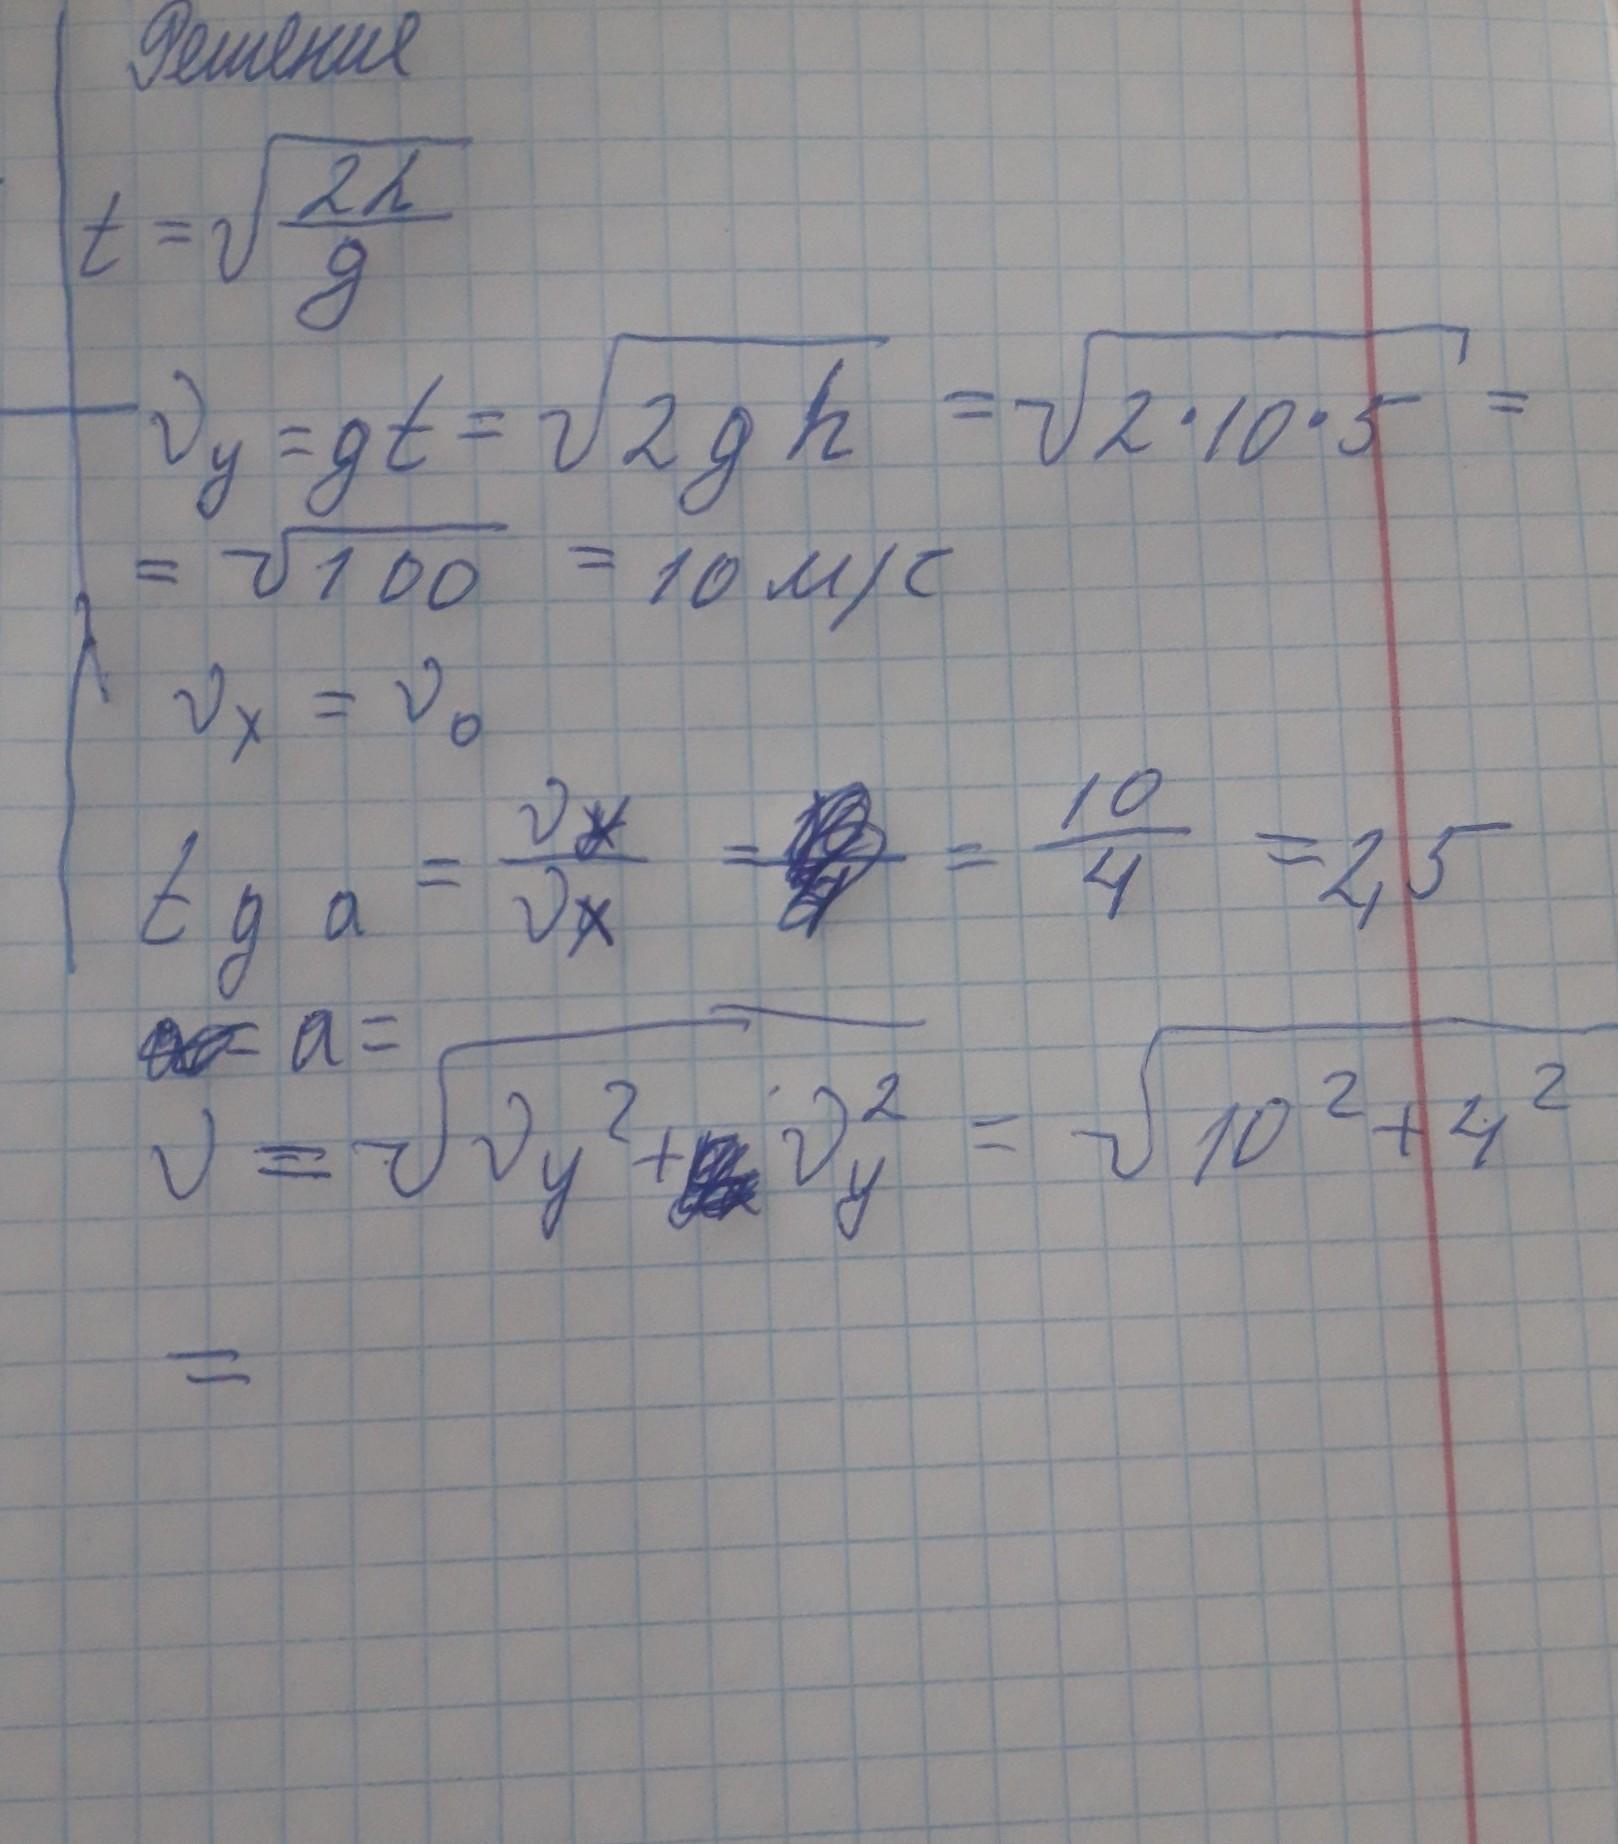 Решение
t = √(2h/g)
v_y = gt = √(2gh) = √(2·10·5) =
= √100 = 10 м/с
v_x = v_0
tg a = v_y/v_x = = 10/4 = 2,5
a =
v = √(v_y² + v_y²) = √(10² + 4²)
=